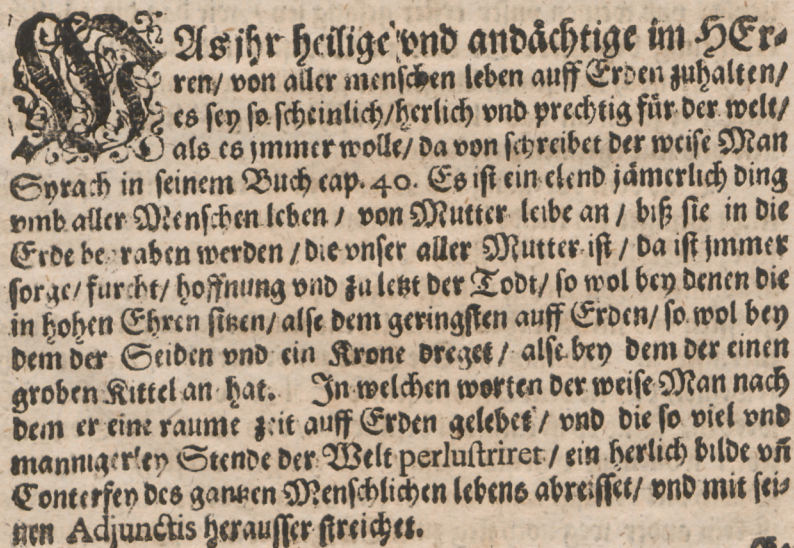 WAs jhr heilige vnd andächtige im HEr-
ren/ von aller menschen leben auff Erden zuhalten/
es sey so scheinlich/herlich vnd prechtig für der welt/
als es jmmer wolle/ da von schreibet der weise Man
Syrach in seinem Buch cap. 40. Es ist ein elend jämerlich ding
vmb aller Menschen leben / von Mutter leibe an / biß sie in die
Erde begraben werden / die vnser aller Mutter ist / da ist jmmer
sorge/ furcht/ hoffnung vnd zu letzt der Todt/ so wol bey denen die
in hohen Ehren sitzen/ alse dem geringsten auff Erden/ so wol bey
dem der Seiden vnd ein Krone dreget / alse bey dem der einen
groben Kittel an hat. In welchen worten der weise Man nach
dem er eine raume zeit auff Erden gelebet / vnd die so viel vnd
mannigerley Stende der Welt perlustriret / ein herlich bilde vn̄
Conterfey des gantzen Menschlichen lebens abreisset/ vnd mit sei-
nen Adjunctis herausser streichet.